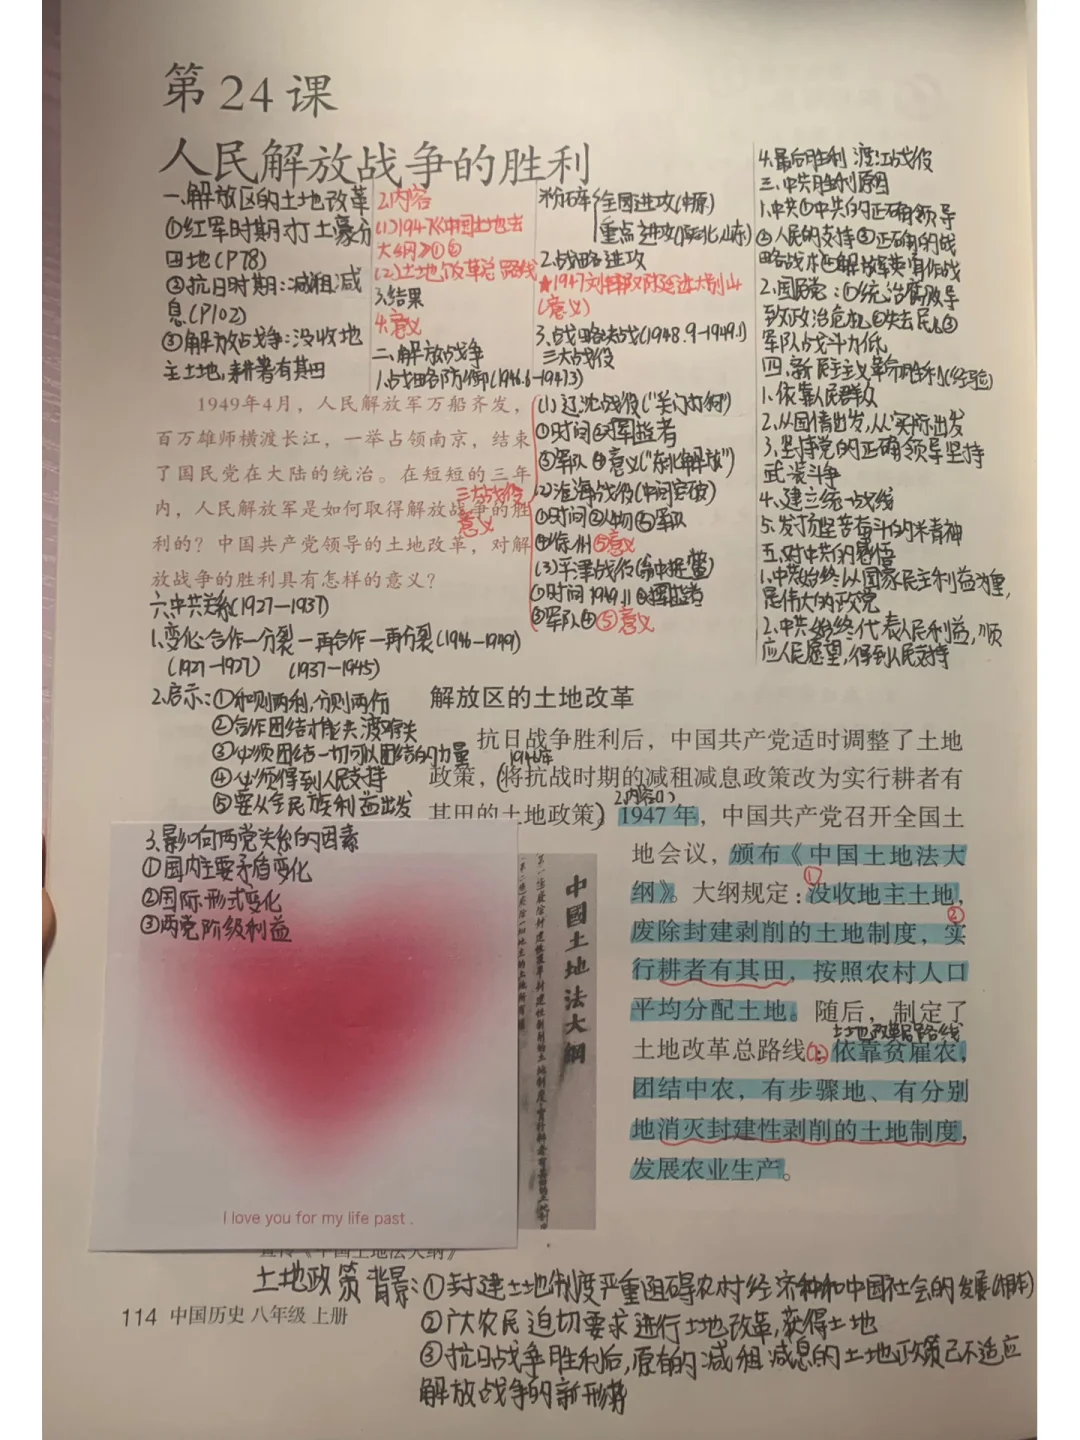 第24课
人民解放战争的胜利
一、解放区的土地改革
①红军时期:打土豪分
田地(P78)
②抗日时期:减租减
息(P102)
③解放战争:没收地
主土地,耕者有其田
2.内容
(1)1947《中国土地法
大纲》①②
(2)土地改革总路线
3.结果
4.意义
二、解放战争
1.战略防御(1946.6-1947.3)
粉碎 全面进攻(中原)
重点进攻(陕北,山东)
2.战略进攻
★1947刘邓邓大军挺进大别山
(意义)
3.战略决战(1948.9-1949.1)
三大战役
(1)辽沈战役("关门打狗")
①时间②指挥者
③军队④意义("东北解放")
(2)淮海战役(中间突破)
①时间②人物③军队
④徐州⑤意义
(3)平津战役(瓮中捉鳖)
①时间1949.1②指挥者
③军队④⑤意义
三大战役
意义
4.最后胜利 渡江战役
三、中共胜利原因
1.中共①中共的正确领导
②人民的支持③正确的战
略战术④解放军英勇作战
2.国民党:①统治腐败导
致政治危机②失去民心③
军队战斗力低
四、新民主主义革命胜利(经验)
1.依靠人民群众
2.从国情出发,从实际出发
3.坚持党的正确领导坚持
武装斗争
4.建立统一战线
5.发扬艰苦奋斗的精神
五、对中共的感悟
1.中共始终从国家民主利益为重,
是伟大的政党
2.中共始终代表人民利益,顺
应人民愿望,得到人民支持
1949年4月,人民解放军万船齐发,
百万雄师横渡长江,一举占领南京,结束
了国民党在大陆的统治。在短短的三年
内,人民解放军是如何取得解放战争的胜
利的?中国共产党领导的土地改革,对解
放战争的胜利具有怎样的意义?
六、中共关系(1927—1937)
1.变化:合作—分裂—再合作—再分裂(1946—1949)
(1927—1937) (1937—1945)
2.启示:①和则两利,分则两行
②合作团结才能共渡难关
③必须团结一切可以团结的力量
④必须得到人民支持
⑤要从全民族利益出发
3.影响两党关系的因素
①国内主要矛盾变化
②国际形式变化
③两党阶级利益
I love you for my life past .
解放区的土地改革
抗日战争胜利后,中国共产党适时调整了土地
1946年
政策,(将抗战时期的减租减息政策改为实行耕者有
2.内容(1)
其田的土地政策)1947年,中国共产党召开全国土
地会议,颁布《中国土地法大
纲》。大纲规定:①没收地主土地,②
废除封建剥削的土地制度,实
行耕者有其田,按照农村人口
平均分配土地。随后,制定了
土地改革总路线
土地改革总路线:依靠贫雇农,
团结中农,有步骤地、有分别
地消灭封建性剥削的土地制度,
发展农业生产。
中國土地法大綱
宣传《中国土地法大纲》
土地政策背景:①封建土地制度严重阻碍农村经济和中国社会的发展(根本)
②广大农民迫切要求进行土地改革,获得土地
③抗日战争胜利后,原有的减租减息的土地政策已不适应
解放战争的新形势
114 中国历史 八年级 上册